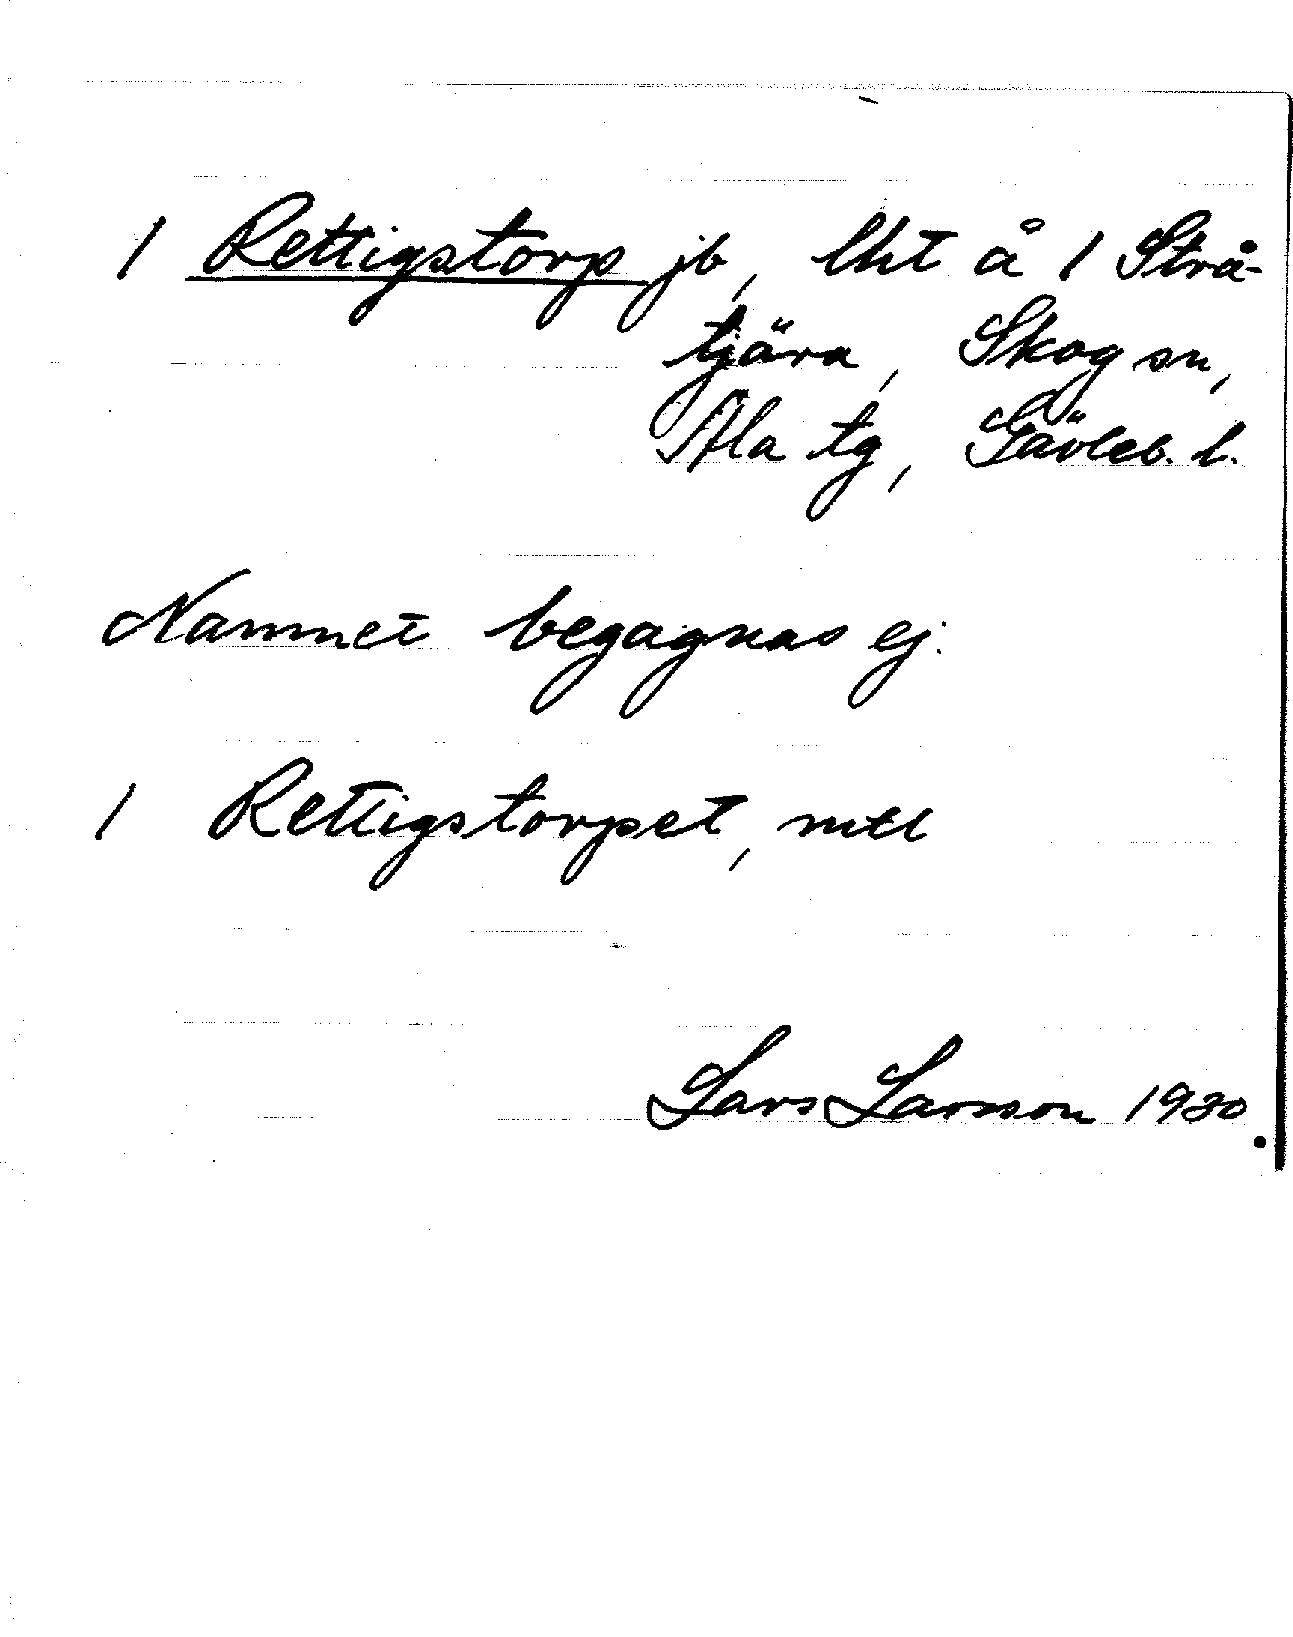 1 Rettigstorp jb, lht å 1 Strå-
tjära, Skog sn,
Ala tg, Gävleb. l.
Namnet begagnas ej.
1 Rettigstorpet, mtl
Lars Larsson 1930